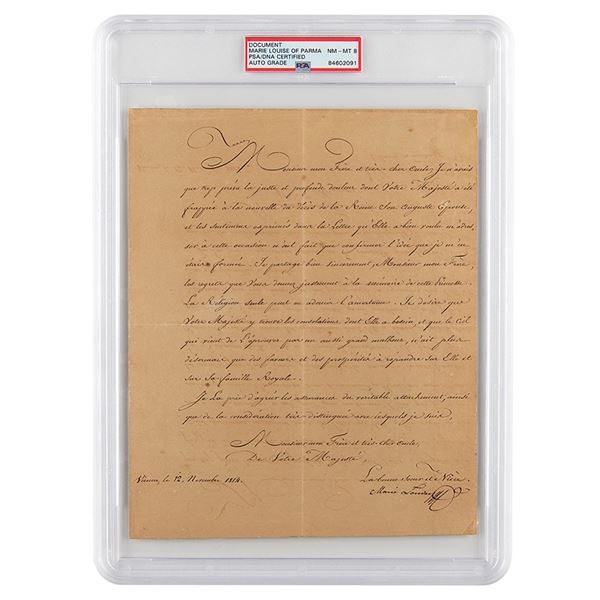 DOCUMENT
MARIE LOUISE OF PARMA NM - MT 8
PSA/DNA CERTIFIED
AUTO GRADE PSA 84602091
Monsieur mon Frère et très-cher Oncle, Je n'avais
que trop prévu la juste et profonde douleur dont Votre Majesté a été
frappée à la nouvelle du décès de la Reine Son auguste Epouse,
et les sentimens exprimés dans la Lettre qu'Elle a bien voulu m'adres,
ser à cette occasion n'ont fait que confirmer l'idée que je m'en
étais formée. Je partage bien sincèrement, Monsieur mon Frère,
les regrets que Vous donnez justement à la mémoire de cette Princesse.
La Religion seule peut en adoucir l'amertume. Je désire que
Votre Majesté y trouve les consolations dont Elle a besoin, et que le Ciel
qui vient de L'éprouver par un aussi grand malheur, n'ait plus
désormais que des faveurs et des prospérités à répandre sur Elle et
sur Sa famille Royale.
Je La prie d'agréer les assurances du véritable attachement, ainsi
que de la considération très-distinguée avec lesquels je suis,
Monsieur mon Frère et très-cher Oncle,
De Votre Majesté,
Vienne, le 12. Novembre 1814.
La bonne Soeur et Nièce
Marie Louise